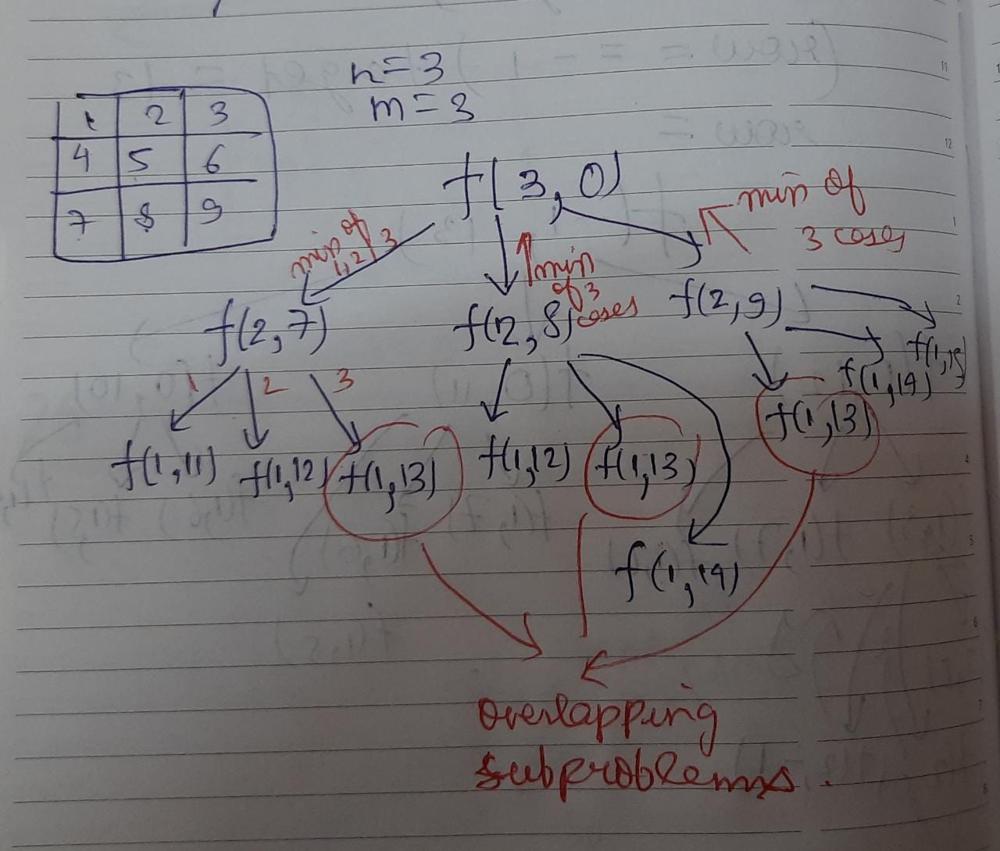 n=3
m=3
1 2 3
4 5 6
7 8 9
f(3,0)
min of
3 cases
min of
1,2,3
min
of 3
cases
f(2,7) f(2,8) f(2,9)
1 2 3
f(1,11) f(1,12) f(1,13) f(1,12) f(1,13) f(1,13) f(1,14) f(1,15)
f(1,14)
overlapping
subproblems.